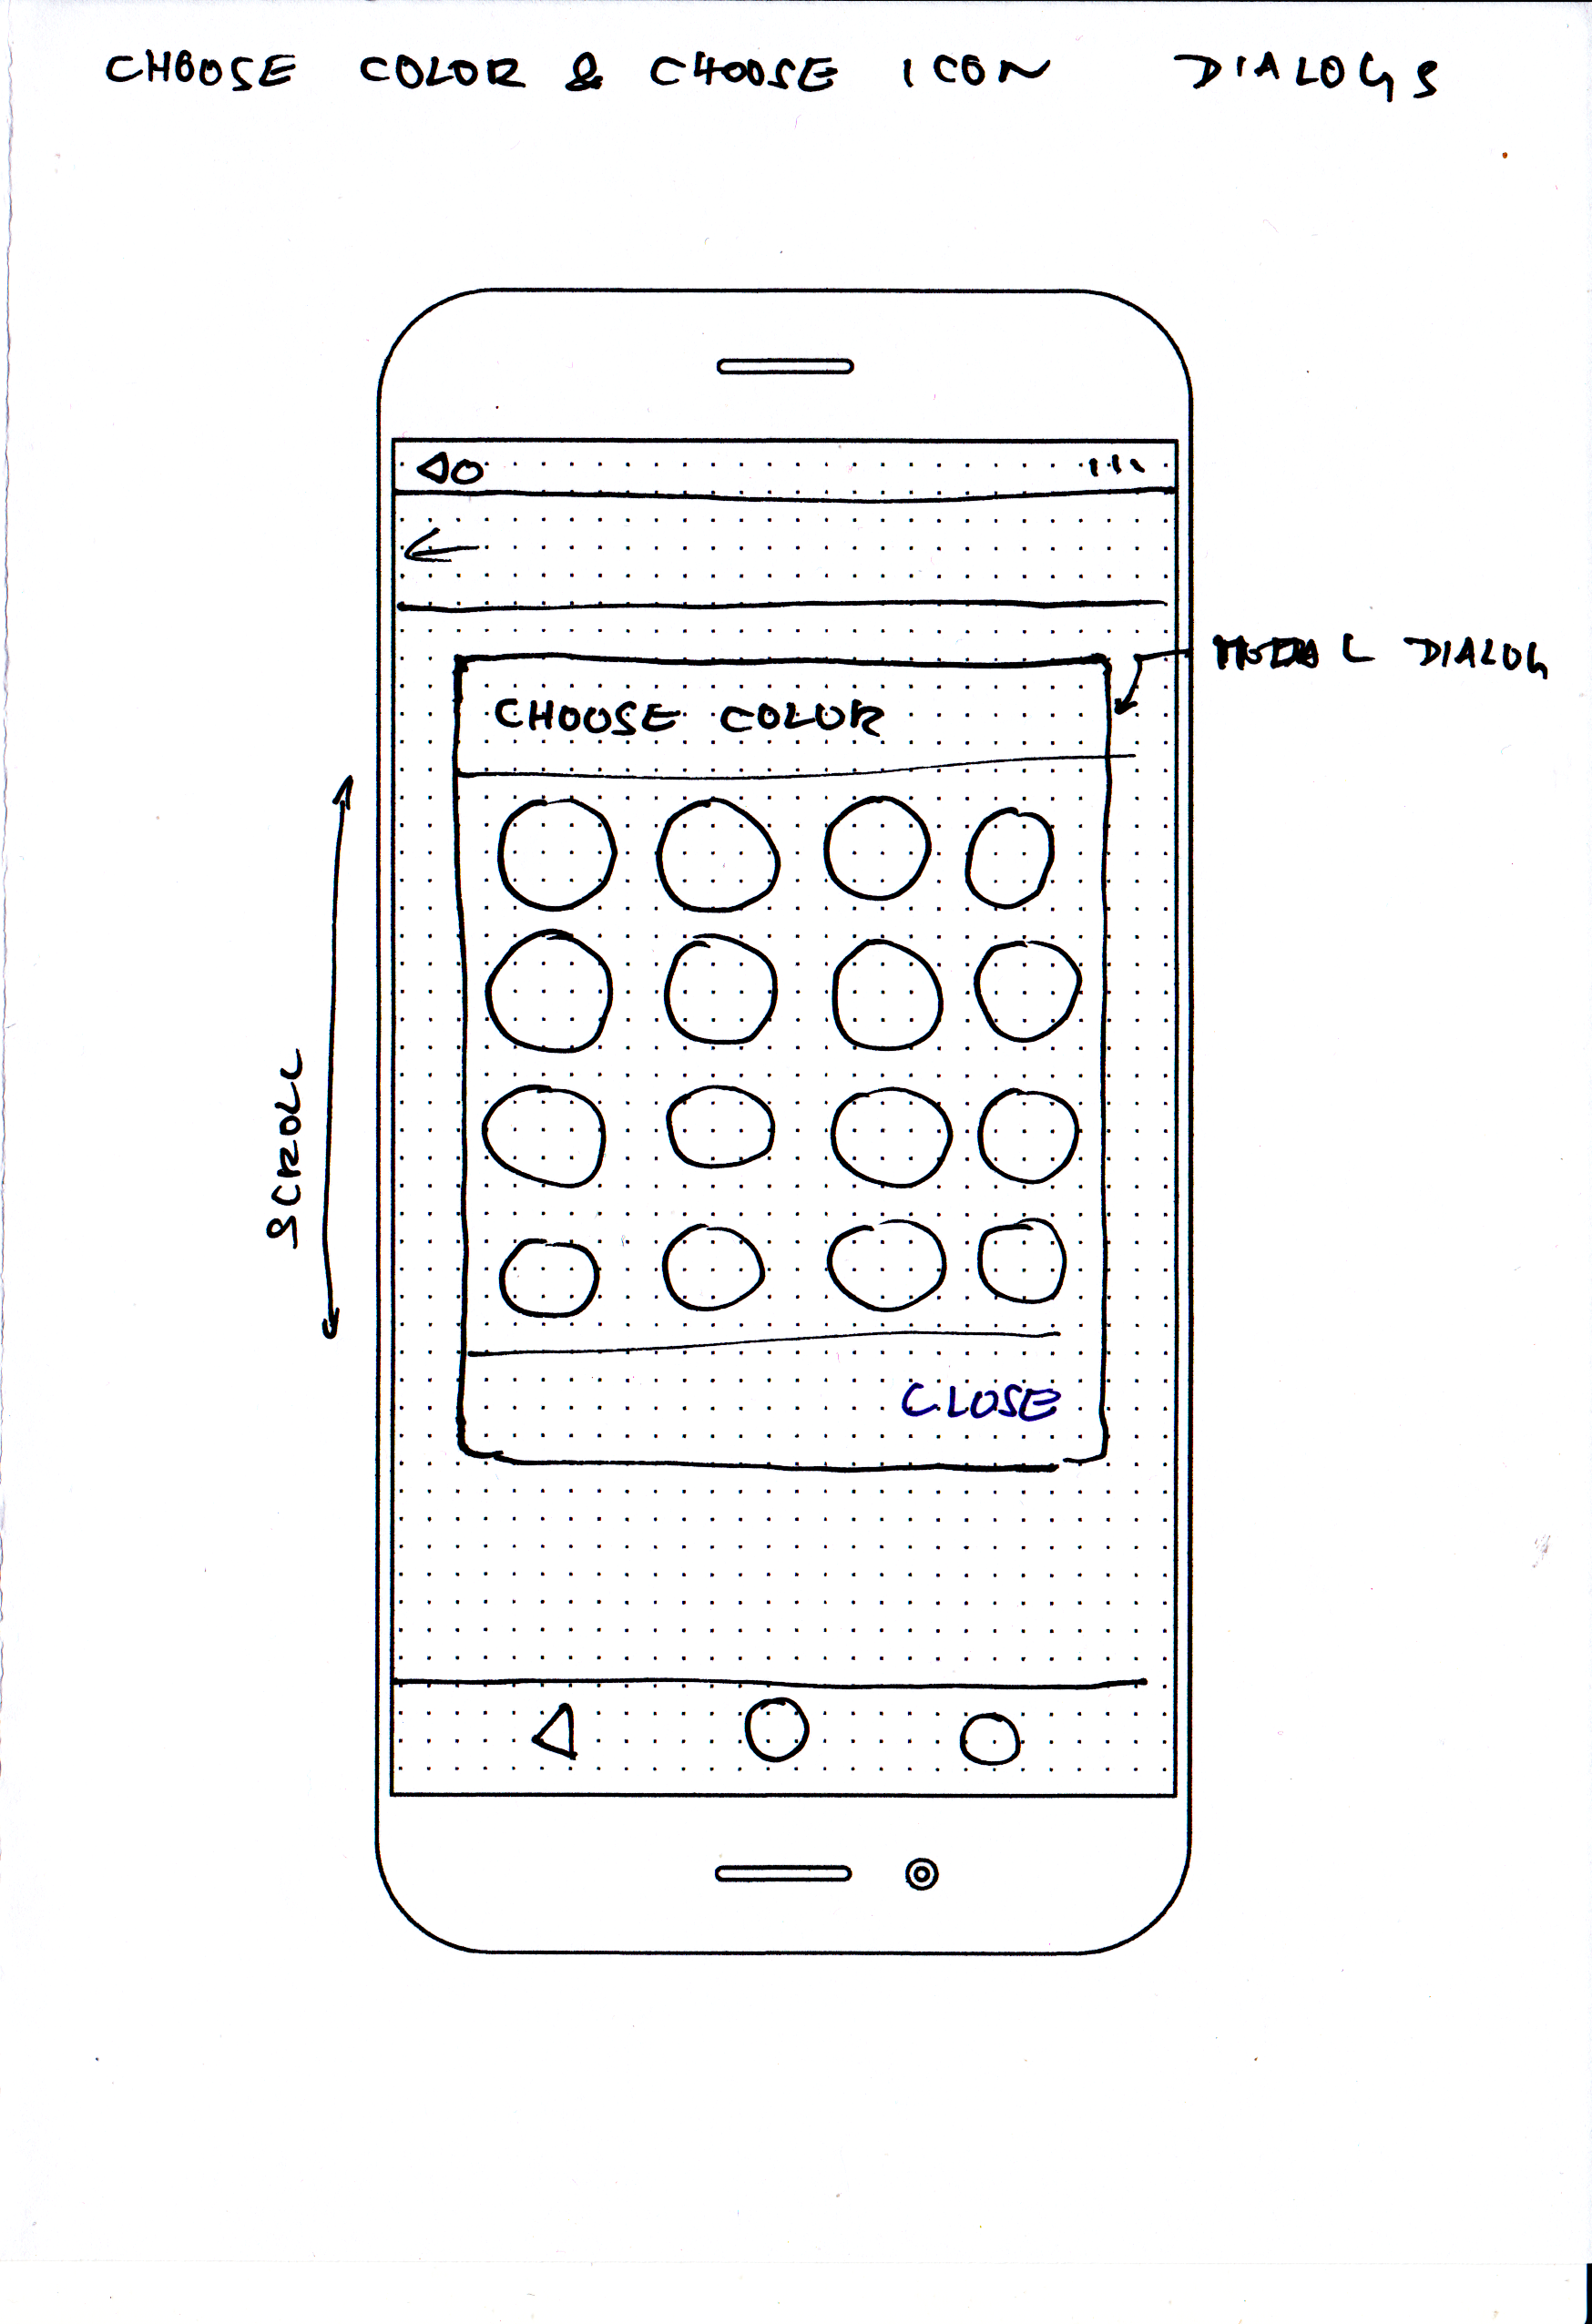 CHOOSE COLOR & CHOOSE ICON DIALOGS
MODAL DIALOG
CHOOSE COLOR
SCROLL
CLOSE